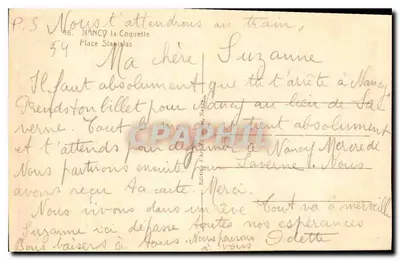 P.S Nous t'attendrons au train.
46. NANCY la Coquette
Place Stanislas
54
Ma chère Suzanne
Il faut absolument que tu t'arrête à Nancy
Prends ton billet pour Nancy au lieu de Sa
verne. Tout absolument
et t'attends pour à Nancy Mercredi
Nous partirons ensuite pour Saverne. Nous
avons reçu ta carte. Merci.
Nous vivons dans un rêve Tout va à merveille
Suzanne ici dépasse toutes nos espérances
Bons baisers à tous. Nous pensons Odette
à vous
CPARAMA